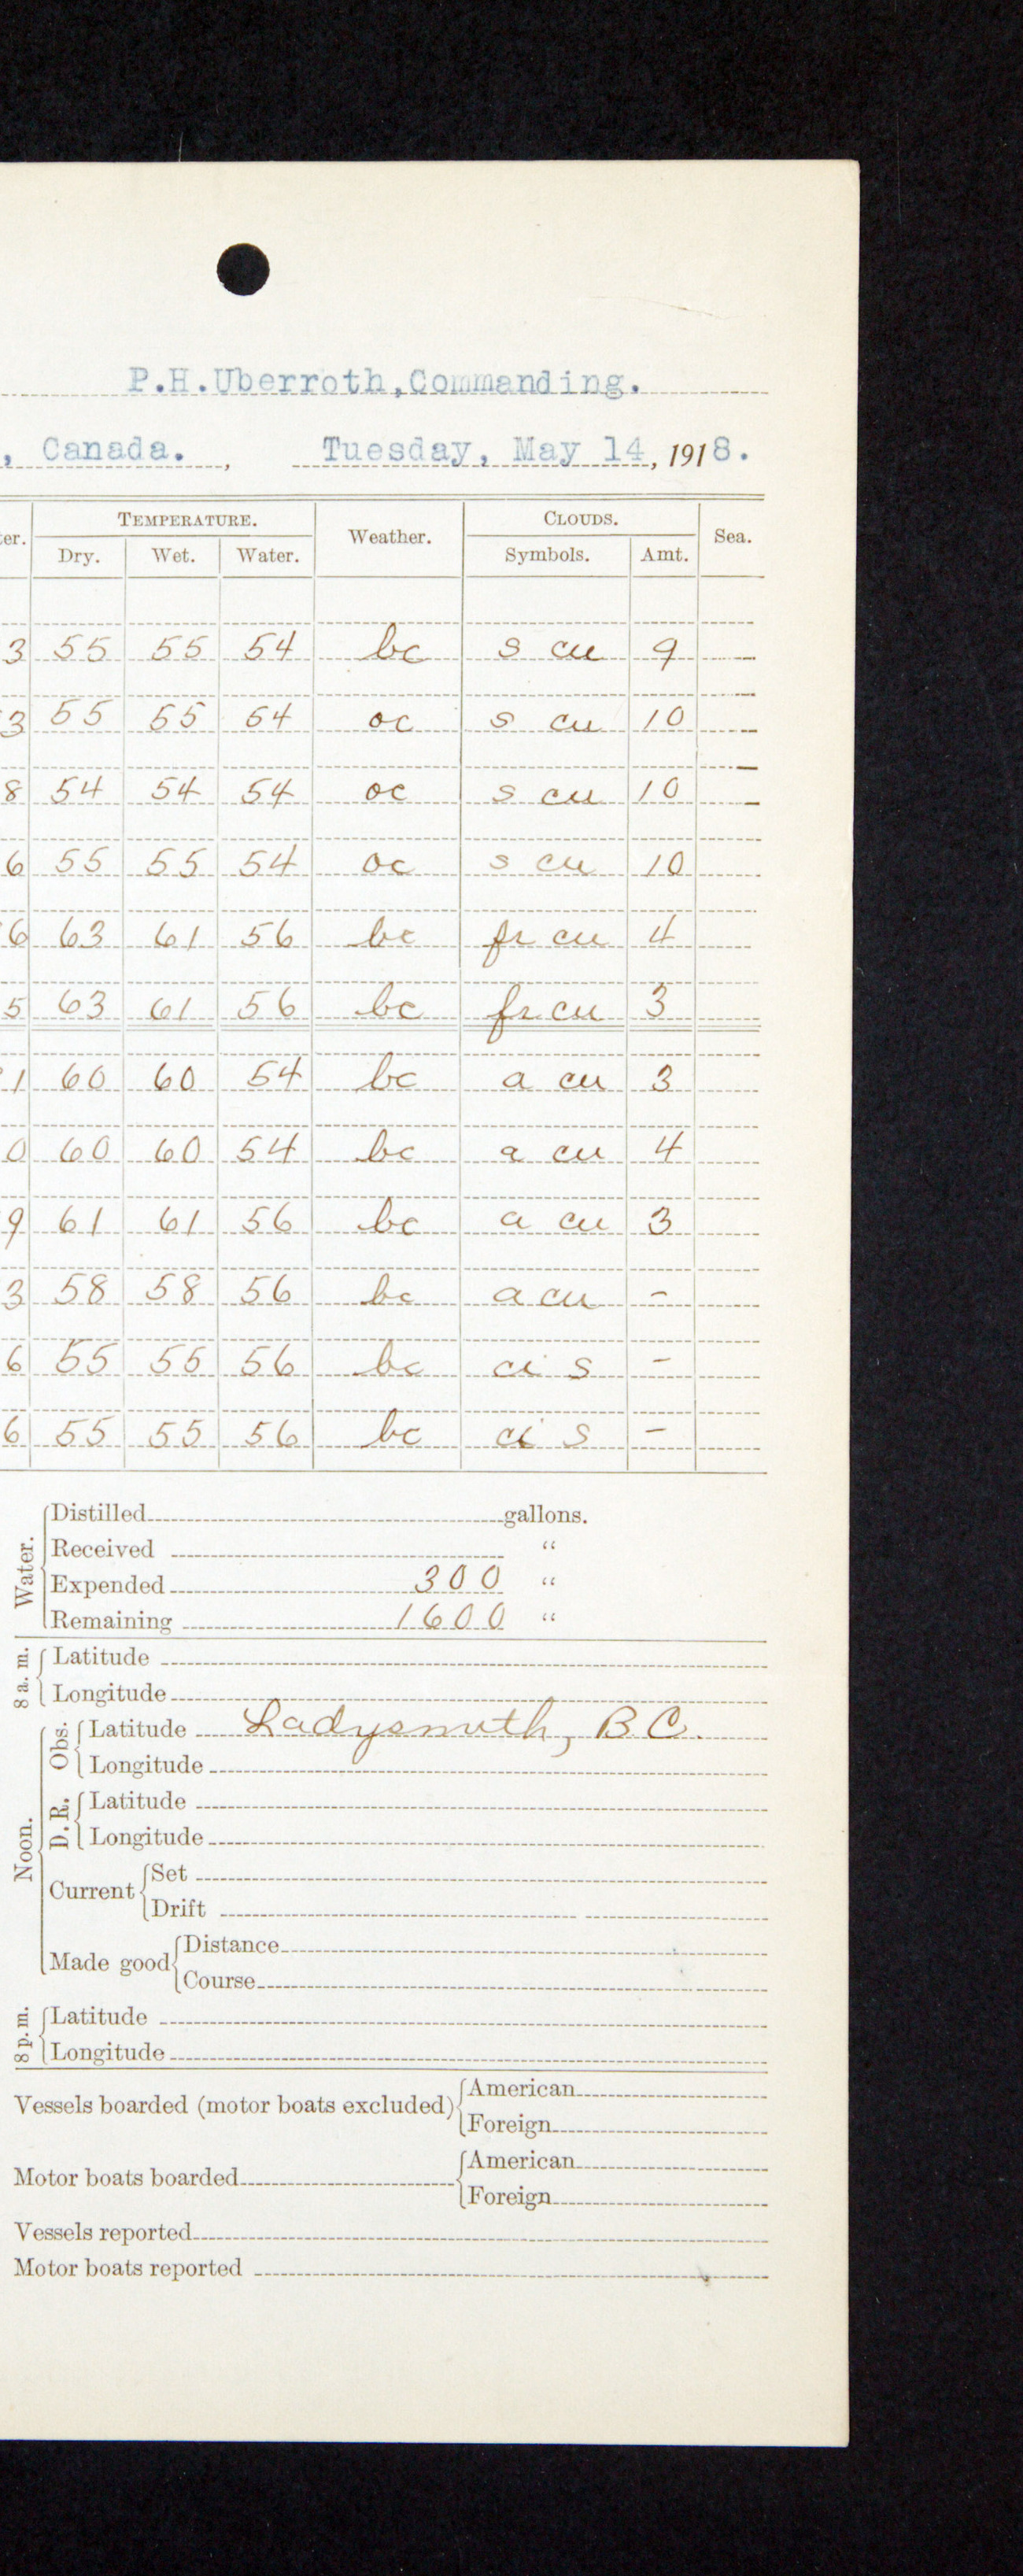 P.H.Uberroth,Commanding.
, Canada. , Tuesday, May 14, 1918.
ter. TEMPERATURE. Weather. CLOUDS. Sea.
Dry. Wet. Water. Symbols. Amt.
3 55 55 54 bc s cu 9
3 55 55 54 oc s cu 10
8 54 54 54 oc s cu 10
6 55 55 54 oc s cu 10
6 63 61 56 bc fr cu 4
5 63 61 56 bc fr cu 3
1 60 60 54 bc a cu 3
0 60 60 54 bc a cu 4
9 61 61 56 bc a cu 3
3 58 58 56 bc a cu -
6 55 55 56 bc ci s -
6 55 55 56 bc ci s -
Water.
Distilled gallons.
Received "
Expended 300 "
Remaining 1600 "
8 a. m.
Latitude
Longitude
Noon.
Obs.
Latitude Ladysmith, B.C.
Longitude
D. R.
Latitude
Longitude
Current
Set
Drift
Made good
Distance
Course
8 p. m.
Latitude
Longitude
Vessels boarded (motor boats excluded)
American
Foreign
Motor boats boarded
American
Foreign
Vessels reported
Motor boats reported